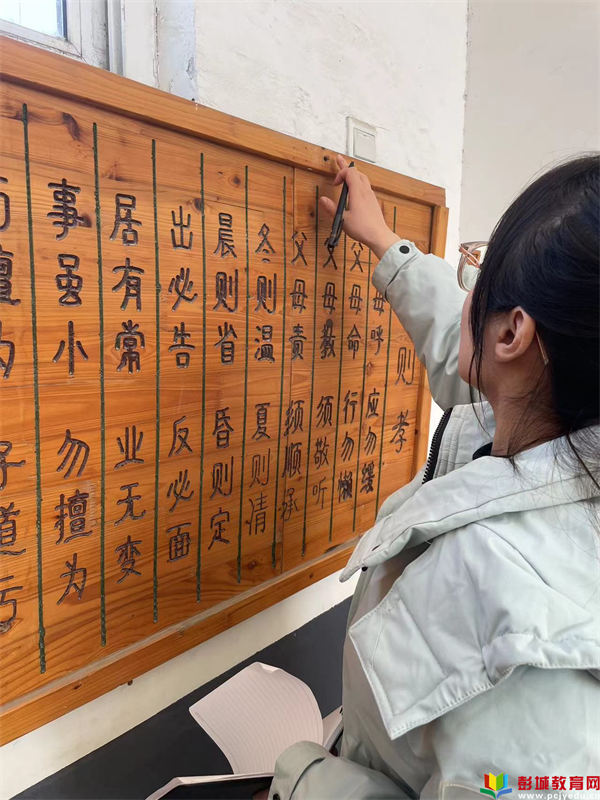 则孝
母呼 应勿缓
父母命 行勿懒
父母教 须敬听
父母责 须顺承
冬则温 夏则清
晨则省 昏则定
出必告 反必面
居有常 业无变
事虽小 勿擅为
擅为 子道亏
彭城教育网
www.pcjyedu.com